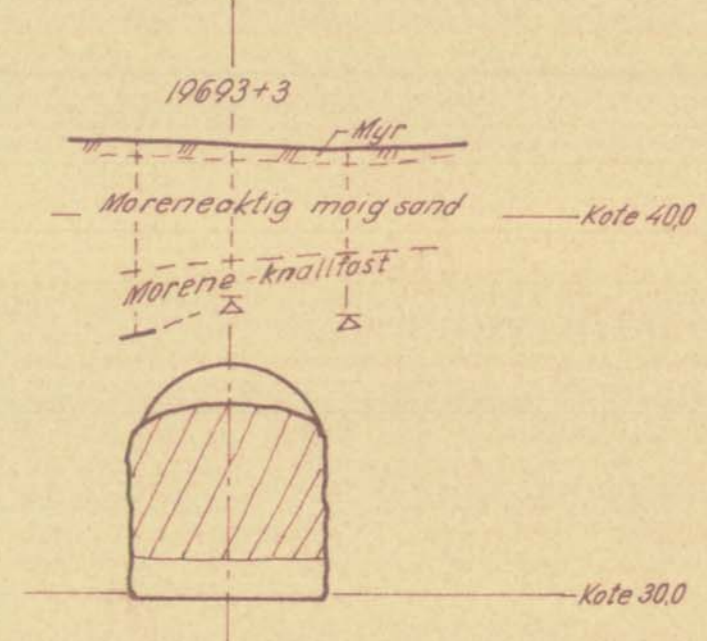 19693+3
Myr
Moreneaktig moig sand
Kote 40,0
Morene - knallfast
Kote 30,0